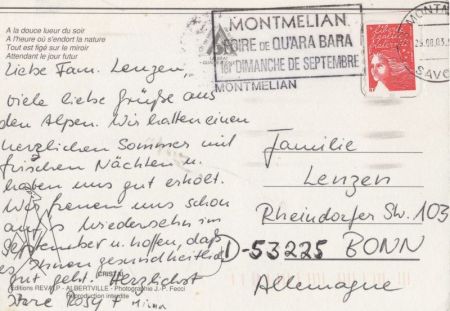 A la douce lueur du soir
A l'heure où s'endort la nature
Tout est figé sur le miroir
Attendant le jour futur
Liebe Fam. Lenzen,
viele liebe Grüße aus
den Alpen. Wir hatten einen
herzlichen Sommer mit
frischen Nächten u.
haben uns gut erholt.
Wir freuen uns schon
aufs Wiedersehn im
September u. hoffen, daß
es Ihnen gesundheitlich
gut geht. Herzlichst
Ihre Rosy +
CRISTAL
Editions REVA - ALBERTVILLE - Photographie J.-P. Fecci
Reproduction interdite
MONTMELIAN
FOIRE DE QU'ARA BARA
1er DIMANCHE DE SEPTEMBRE
MONTMELIAN
MONTM
25.08.03
SAVO
Familie
Lenzen
Rheindorfer Str. 103
D-53225 BONN
Allemagne